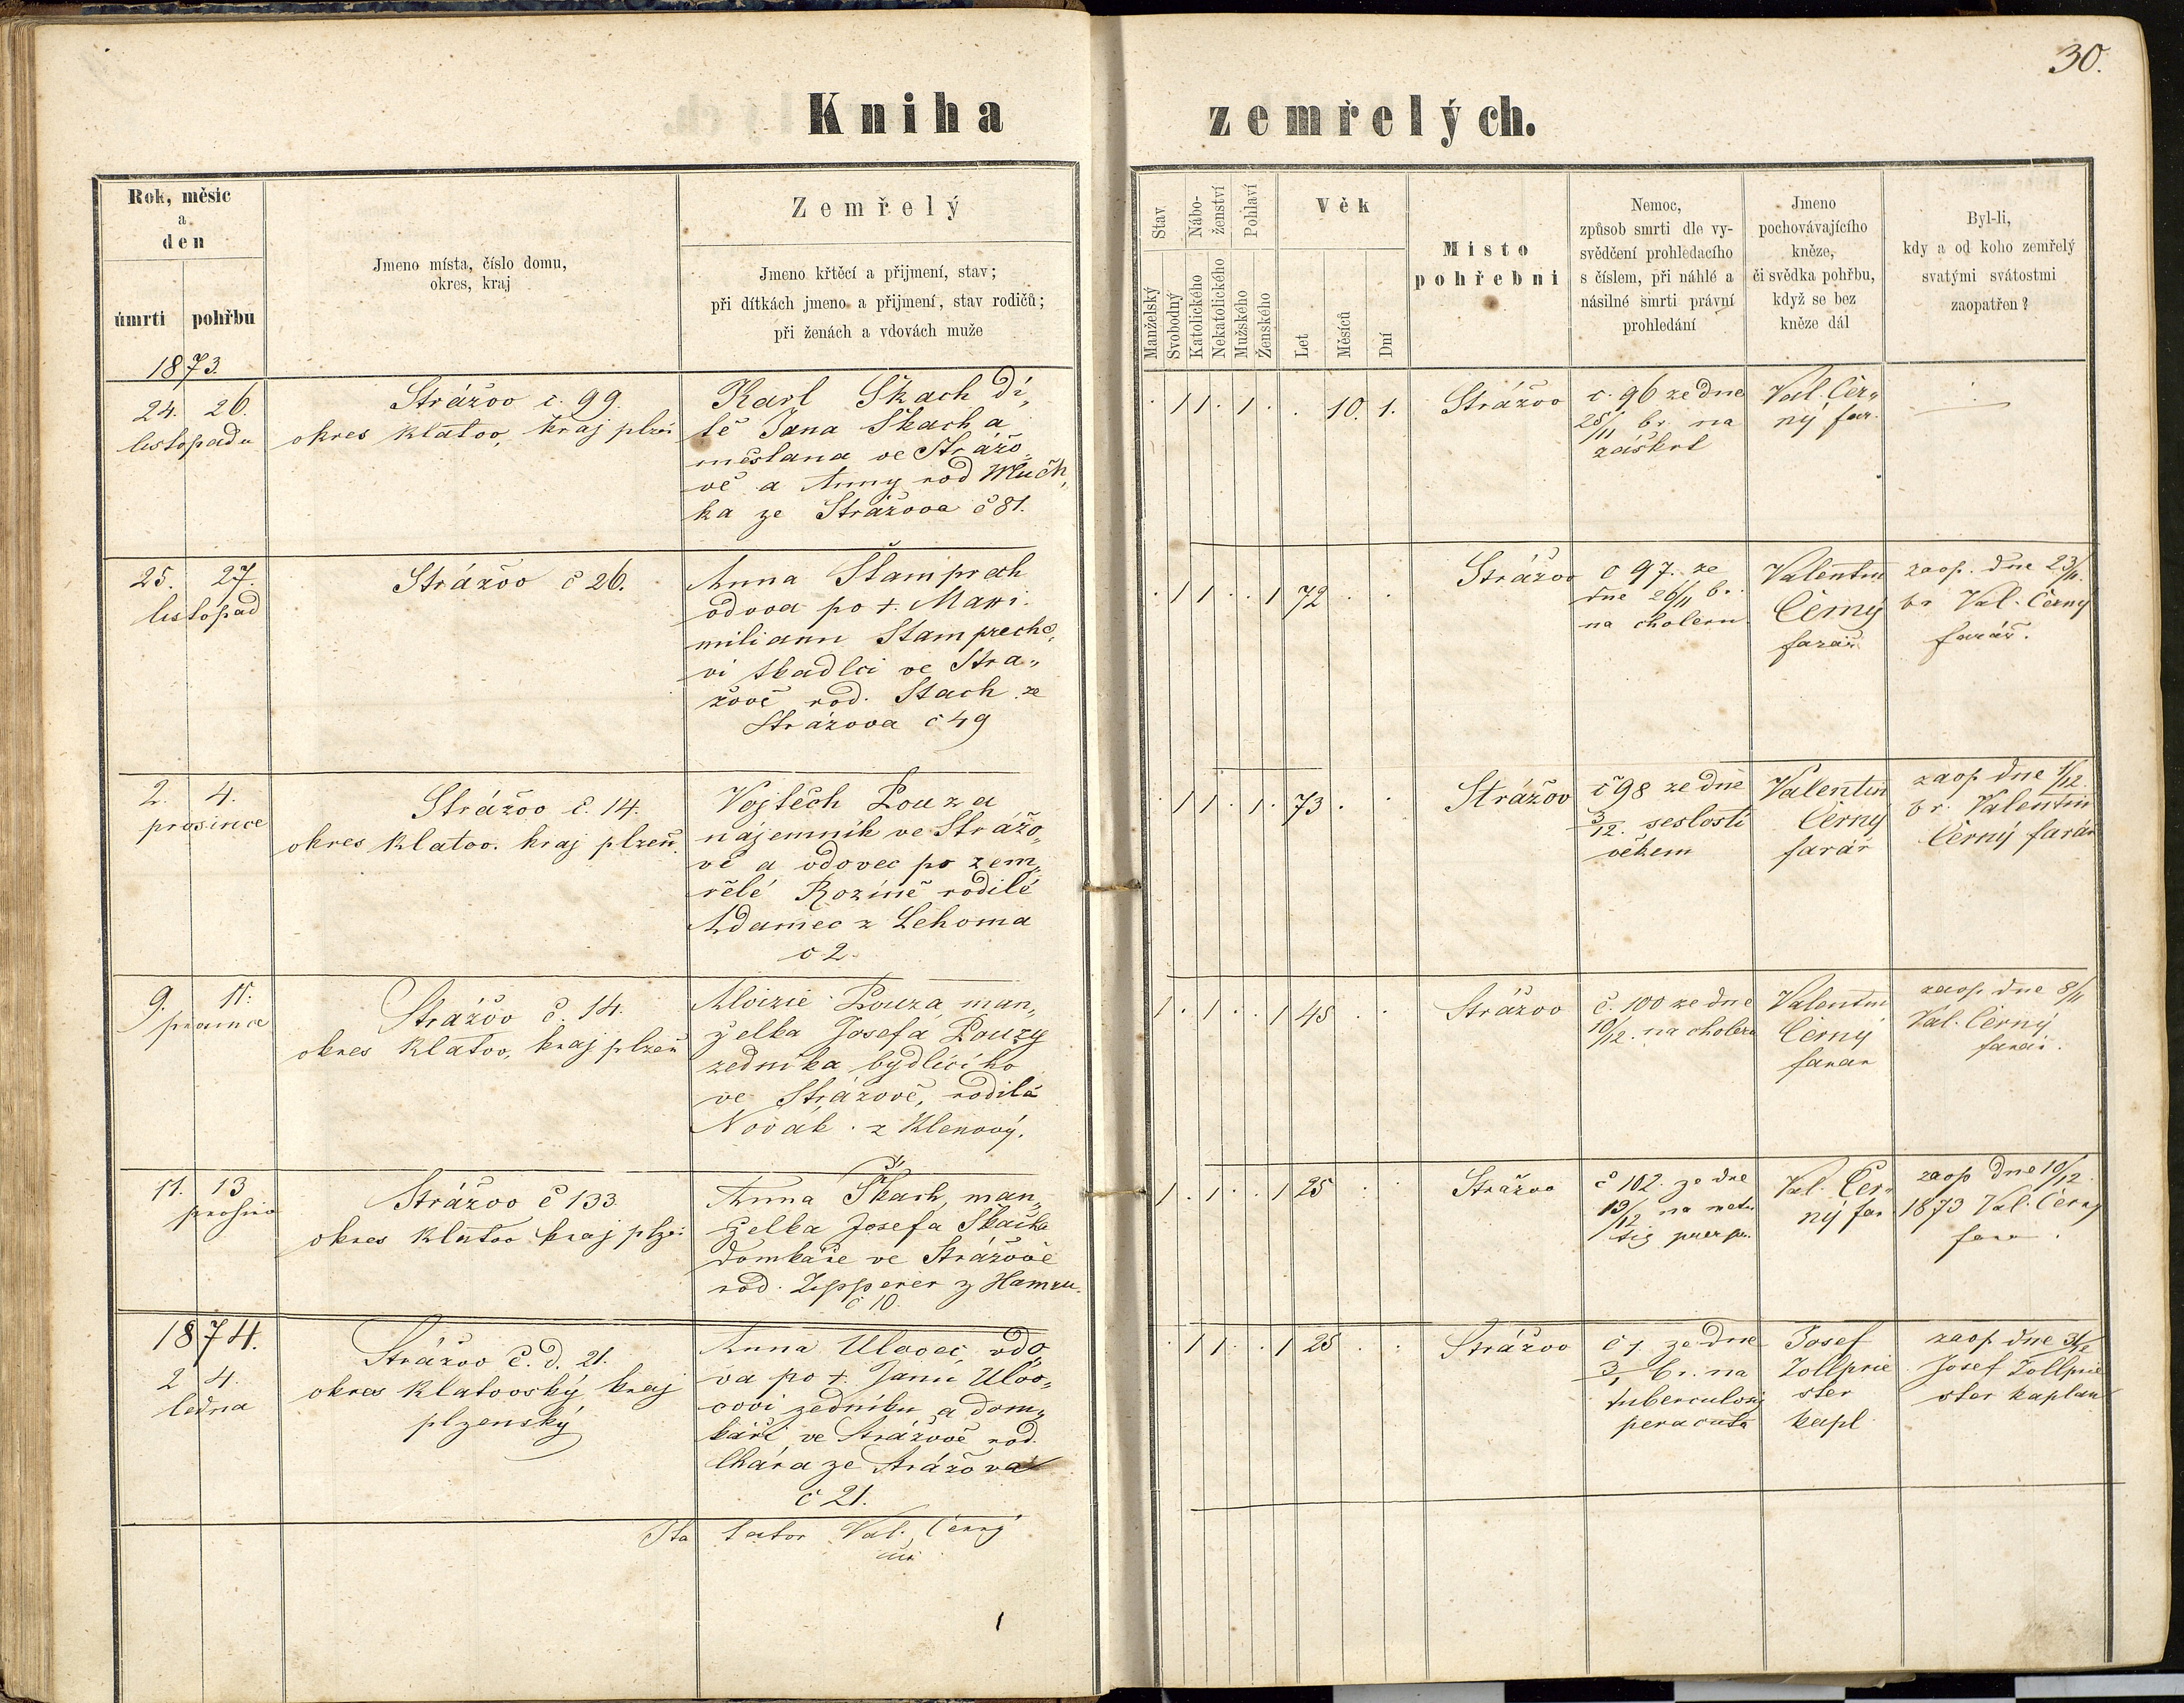 30.
Kniha zemřelých.
Rok, měsíc
a
den
úmrtí pohřbu
Jmeno místa, číslo domu,
okres, kraj
Zemřelý
Jmeno křtěcí a přijmení, stav;
při dítkách jmeno a přijmení, stav rodičů;
při ženách a vdovách muže
Stav
Manželský
Svobodný
Nábo-
ženství
Katolického
Nekatolického
Pohlaví
Mužského
Ženského
Věk
Let
Měsíců
Dní
Místo
pohřební
Nemoc,
způsob smrti dle vy-
svědčení prohledacího
s číslem, při náhlé a
násilné smrti právní
prohledání
Jmeno
pochovávajícího
kněze,
či svědka pohřbu,
když se bez
kněze dál
Byl-li,
kdy a od koho zemřelý
svatými svátostmi
zaopatřen?
1873.
24. 26.
listopadu
Strážov č. 99.
okres Klatov, kraj plzeň
Karl Skach dí„
tě Jana Skacha
měšťana ve Strážo„
vě a Anny rod
ka ze Strážova č 81.
10. 1.
Strážov
č. 96 ze dne
25/11 br. na
záškrt
Val. Čer„
ný far.
25. 27.
listopad
Strážov č 26.
Anna Štamprech
vdova po †. Maxi„
milianu Stamprecho„
vi tkadlci ve Stra„
žově rod. Skach ze
Strážova č 49
72
Strážov
č 97. ze
dne 26/11 br.
na choleru
Valentin
Černý
farář
zaop. dne 23/11.
br Val. Černý
farář.
2. 4.
prosince
Strážov č. 14.
okres Klatov. kraj plzeň.
Vojtěch Pouza
nájemník ve Strážo„
vě a vdovec po zem„
řelé Rozině rodilé
Adamec z Lehoma
č 2.
73
Strážov
č 98 ze dne
3/12. sešlostí
věkem
Valentin
Černý
farář
zaop dne 1/12.
br. Valentin
Černý farář
9. 11.
prosince
Strážov č. 14.
okres Klatov, kraj plzeň
Aloizie Pouza, man„
želka Josefa Pouzy
zedníka bydlícího
ve Strážově, rodilá
Novák z Klenový.
45
Strážov
č. 100 ze dne
10/12. na choleru
Valentin
Černý
farar
zaop. dne 8/11
Val. Černý
farář.
11. 13
prosinc
Strážov č 133
okres Klatov kraj plzeň
Anna Škach, man„
želka Josefa Škacha
domkáře ve Strážově
rod. Zipperer z Hamru.
č 10.
25
Strážov
č 102. ze dne
13/12 na
Val. Čer„
ný far
zaop dne 10/12.
1873 Val. Černý
1874.
2 4.
ledna
Strážov č. d. 21.
okres Klatovský kraj
plzenský
Anna Ulovec, vdo„
va po †. Janu Ulov„
covi zedníku a dom„
káři ve Strážově rod.
ze Strážova
č 21.
25
Strážov
č 1. ze dne
3/1 br. na
tuberculosis
peracuta
Josef
Zollprie
ster
kapl
zaop dne 31/12
Josef Zollprie
ster kaplan
Ita tator Val. Černý